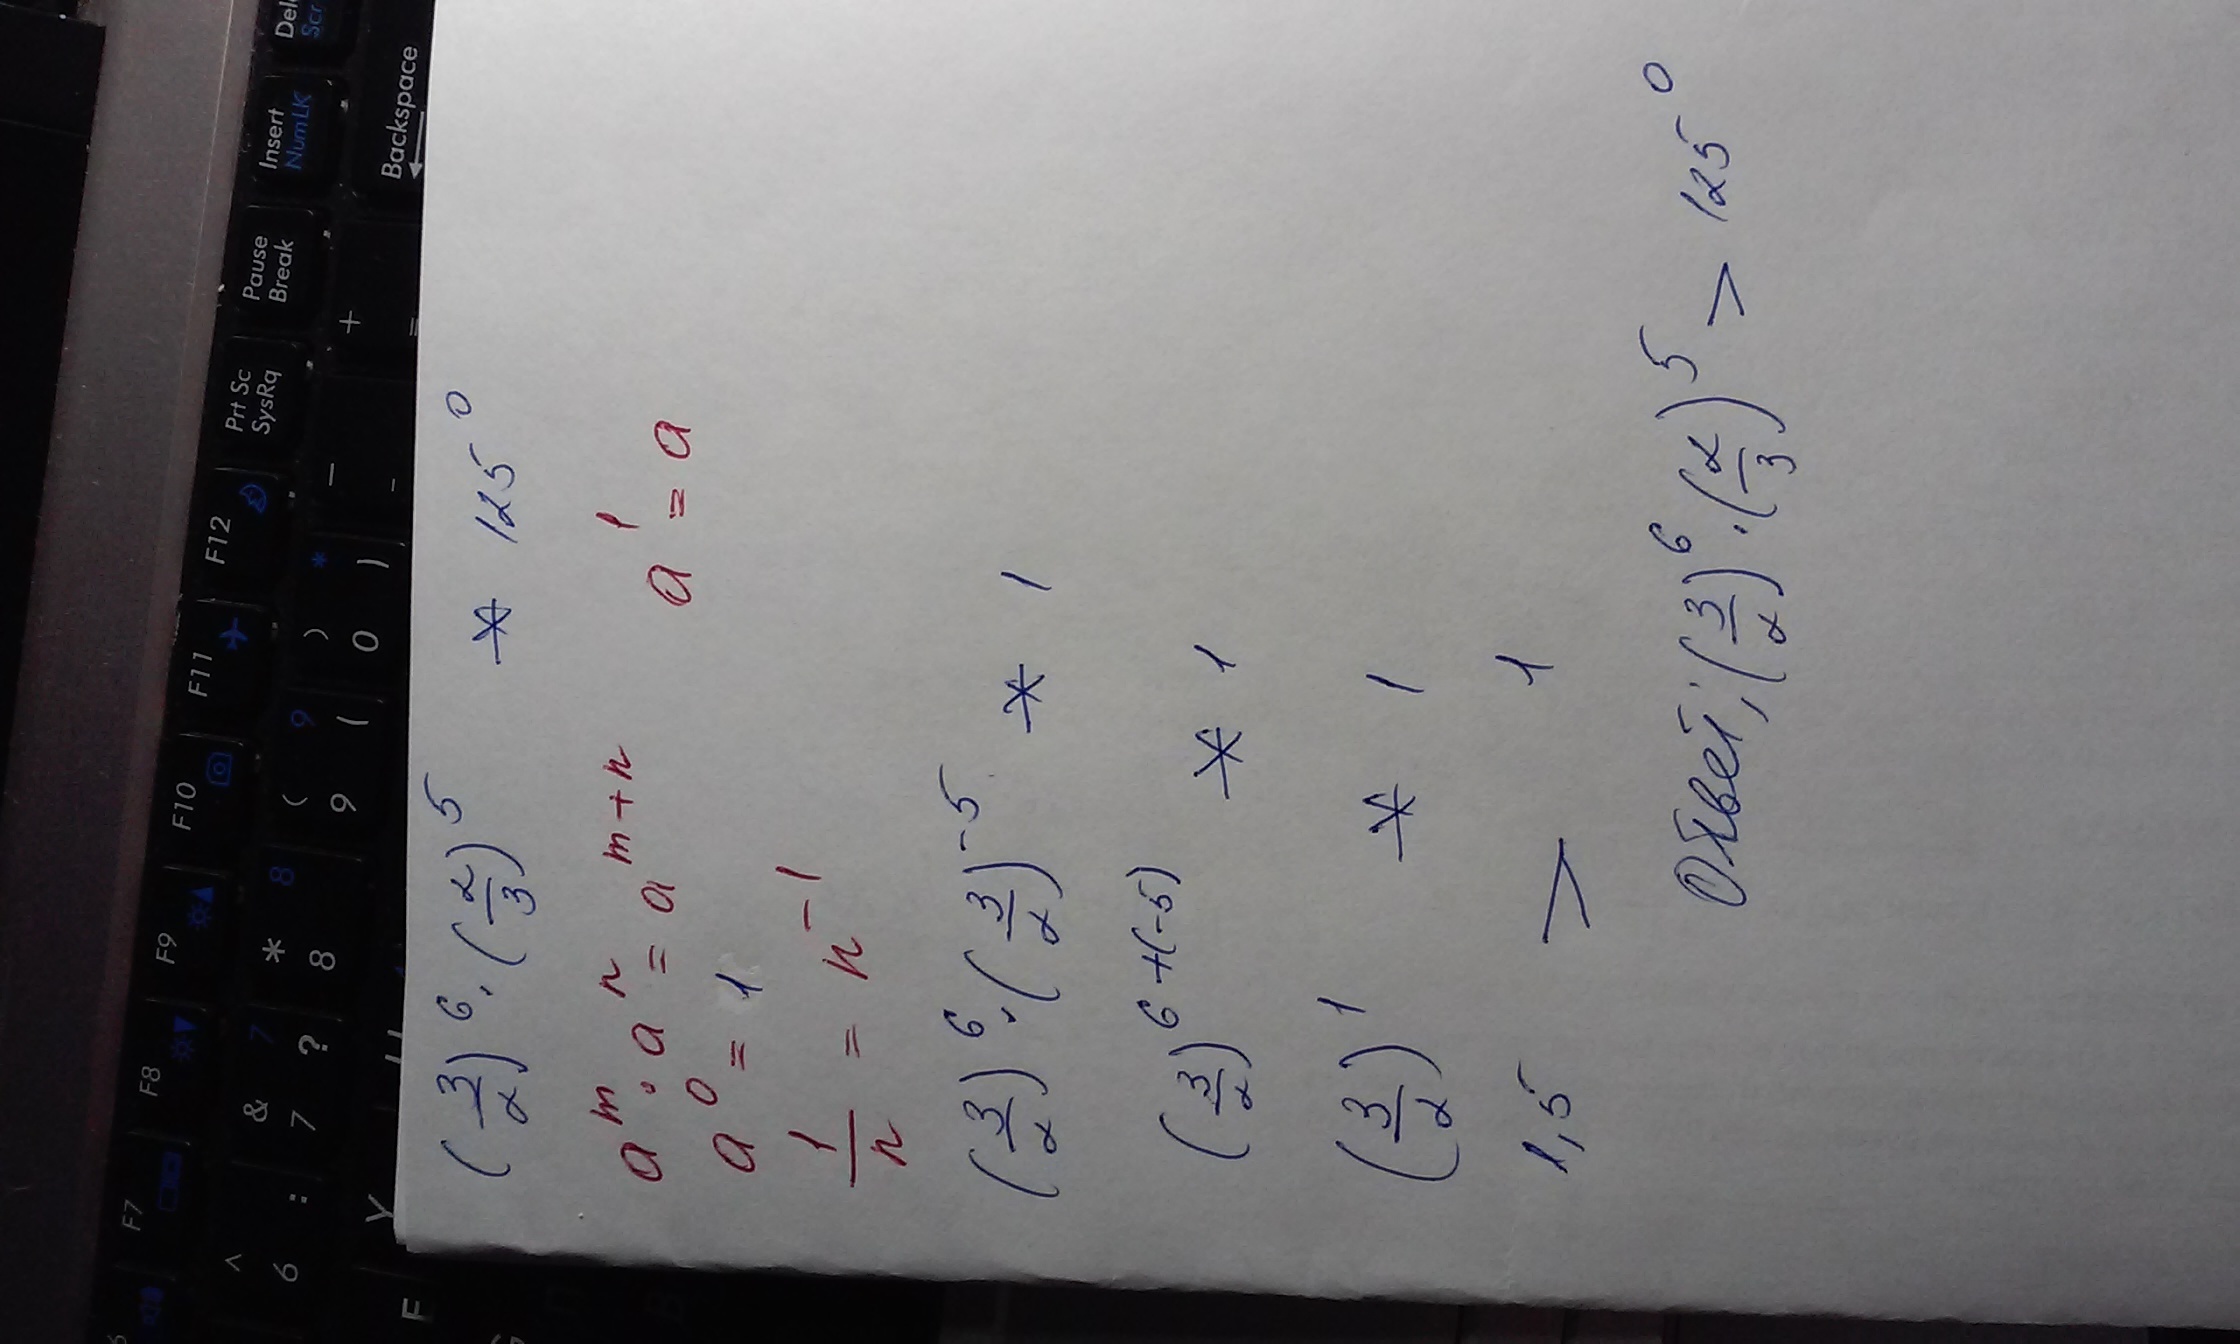 (3/2)⁶ · (2/3)⁵ * 125⁰
aᵐ · aⁿ = aᵐ⁺ⁿ a¹ = a
a⁰ = 1
1/n = n⁻¹
(3/2)⁶ · (3/2)⁻⁵ * 1
(3/2)⁶⁺⁽⁻⁵⁾ * 1
(3/2)¹ * 1
1,5 > 1
Ответ; (3/2)⁶ · (2/3)⁵ > 125⁰
F7 F8 F9 F10 F11 F12 Prt Sc SysRq Pause Break Insert NumLK Del Scr
^ 6 : & 7 ? 7 * 8 8 ( 9 9 ) 0 ( * ) _ - + = Backspace
Y
F